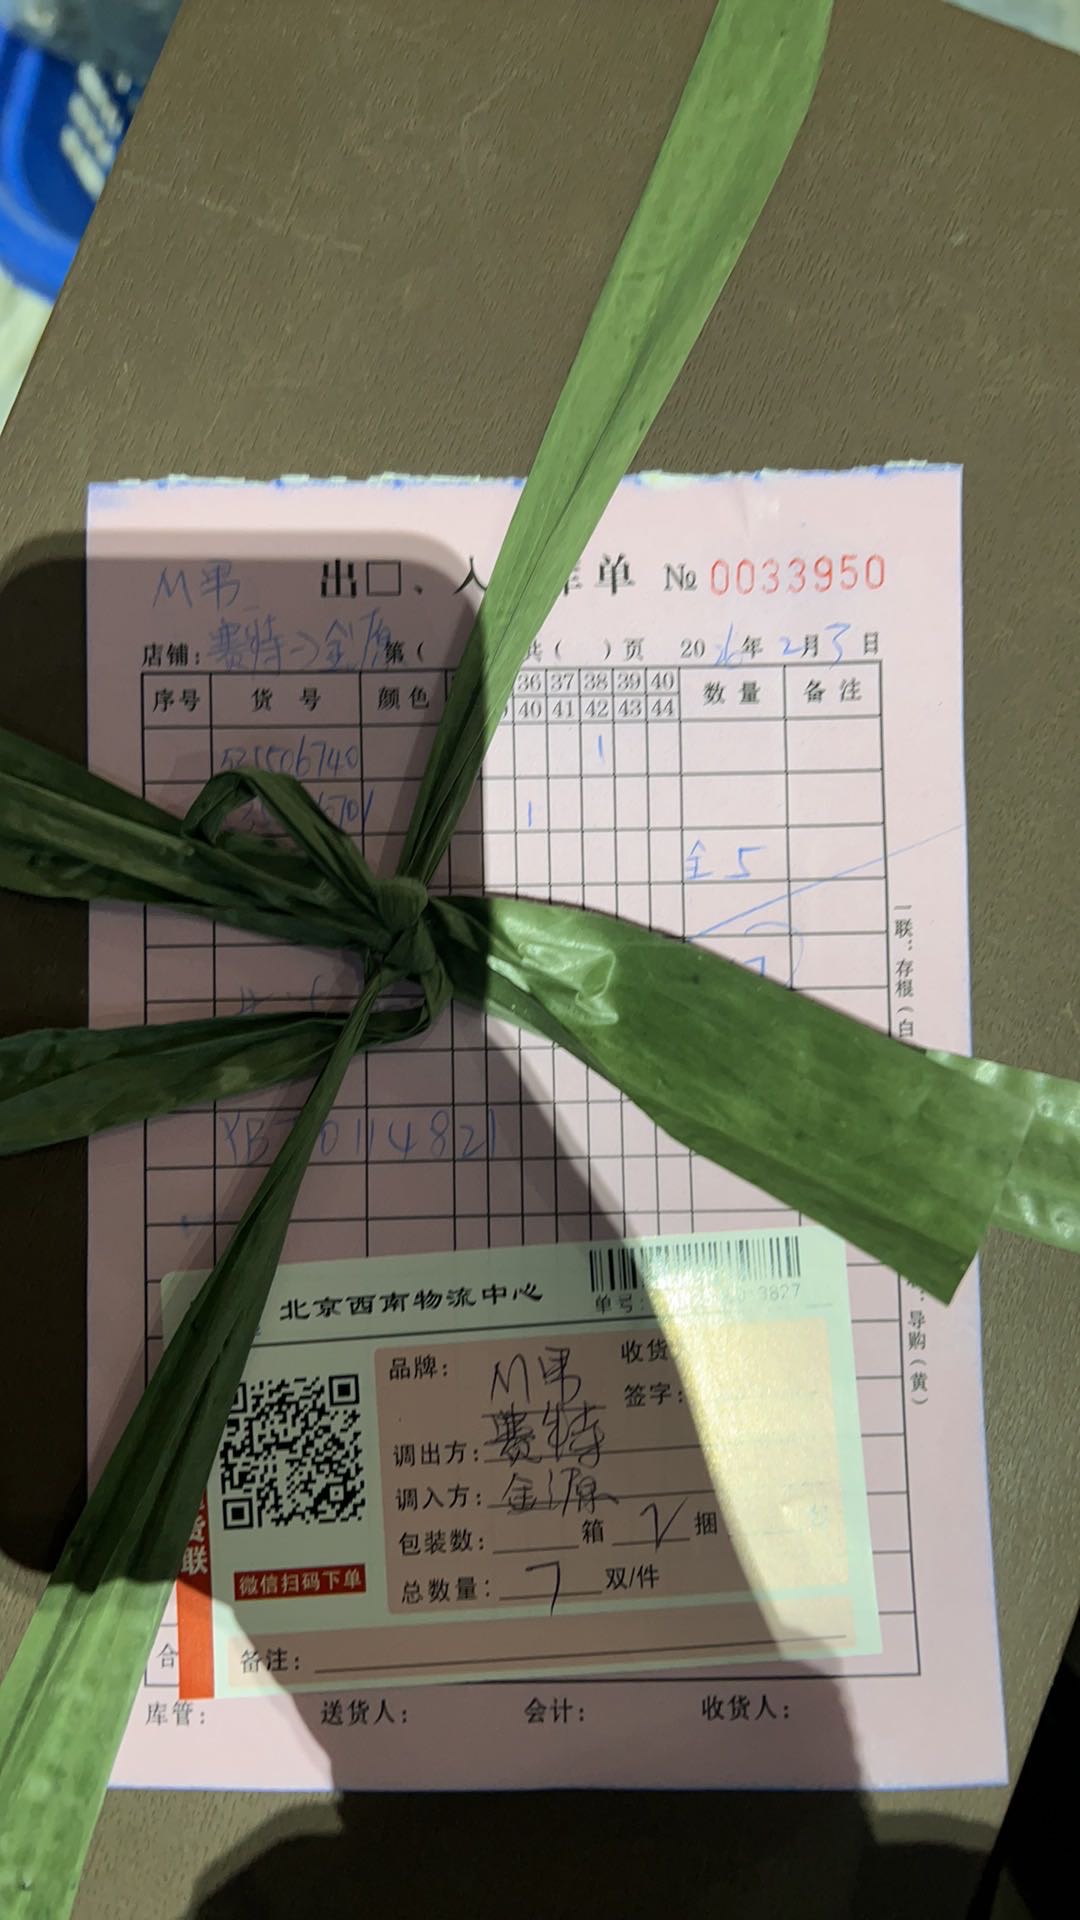 M男
出口、入库单 № 0033950
店铺: 赛特→金源 第( 共( )页 2026年2月3日
序号 货号 颜色 36 37 38 39 40 数量 备注
40 41 42 43 44
1
6701 1
全5
7
YB 0114821
一联:存根(白
:导购(黄)
北京西南物流中心
单号: 3827
品牌: M男 收货
签字:
调出方: 赛特
调入方: 金源
包装数: 箱 2 捆
总数量: 7 双/件
货联
微信扫码下单
备注:
合
库管: 送货人: 会计: 收货人: